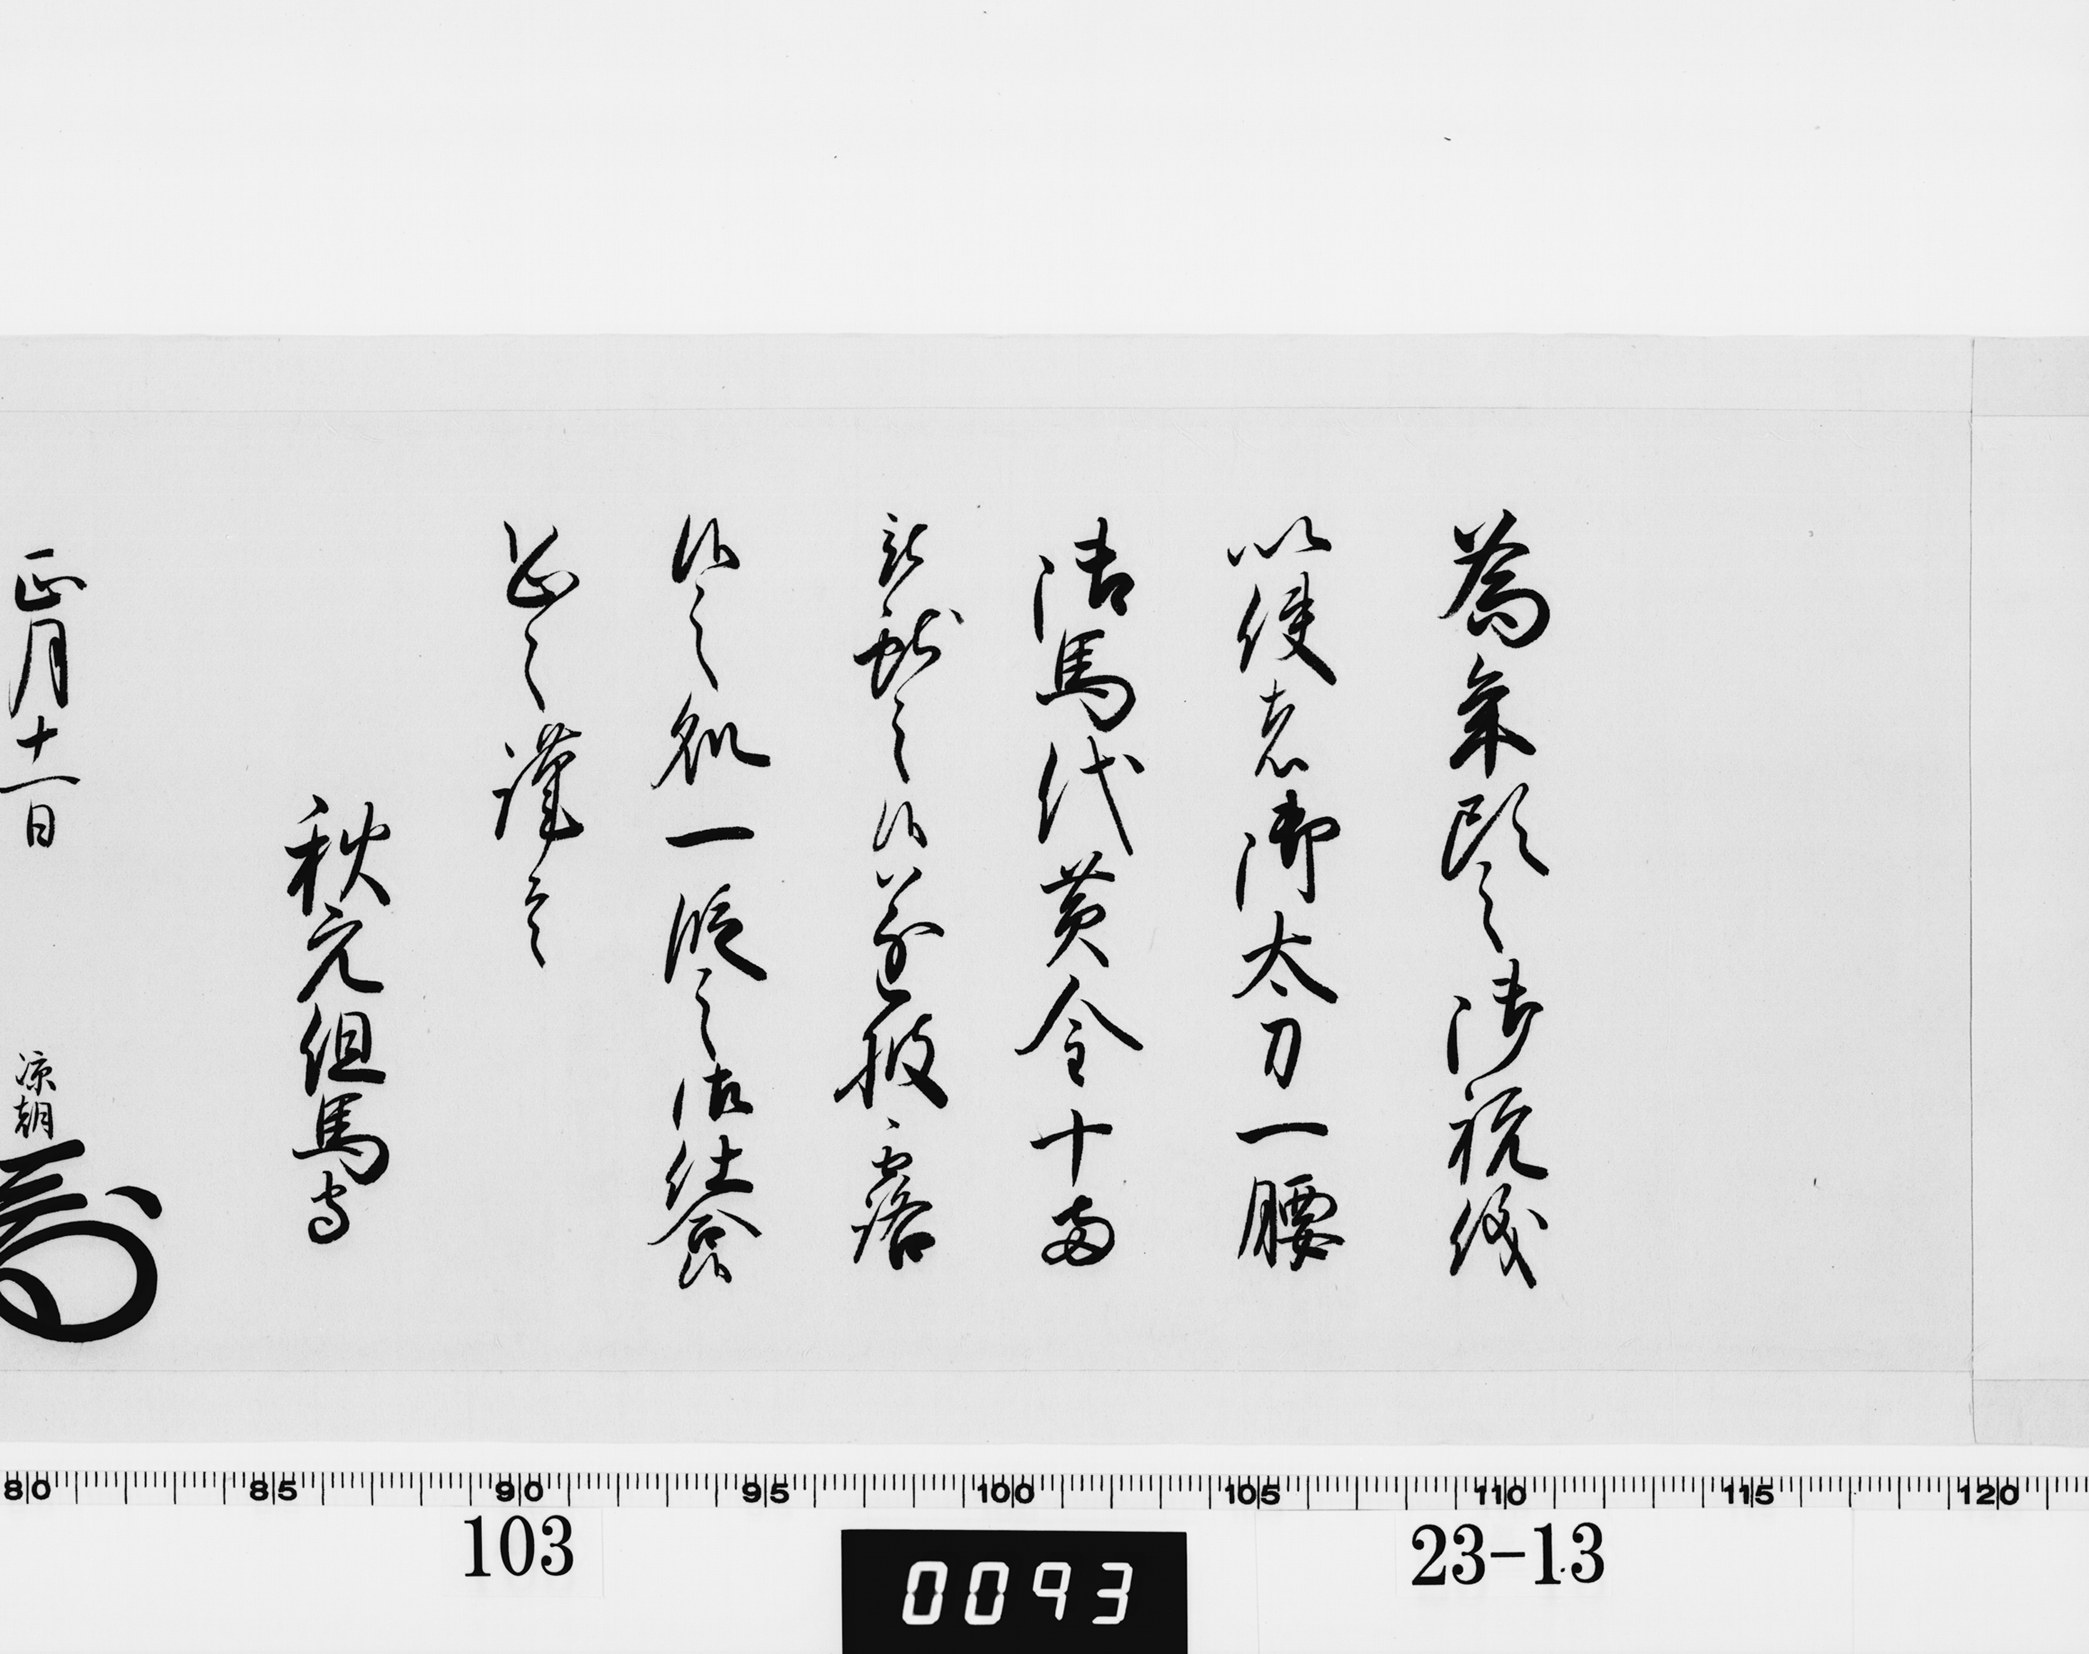 為年頭之御祝儀
以使者御太刀一腰
御馬代黄金十両
被献之候遂披露
候之処一段之御仕合候
恐々謹言
秋元但馬守
正月十一日 涼朝
80 85 90 95 100 105 110 115 120
103 0093 23-13